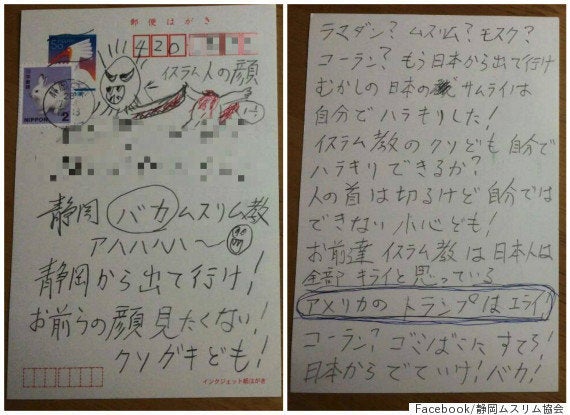 郵便はがき
420
NIPPON
2
イスラム人の顔
静岡 バカ ムスリム教
アハハハハ〜
静岡から出て行け!
お前らの顔見たくない!
クソガキども!
インクジェット紙はがき
ラマダン? ムスリム? モスク?
コーラン? もう日本から出て行け
むかしの日本のサムライは
自分でハラキリした!
イスラム教のクソども 自分で
ハラキリできるか?
人の首は切るけど自分では
できない小心ども!
お前達 イスラム教は日本人は
全部 キライと思っている
アメリカの トランプは エライ!
コーラン? ゴミばこに すてろ!
日本から でていけ! バカ!
Facebook/静岡ムスリム協会